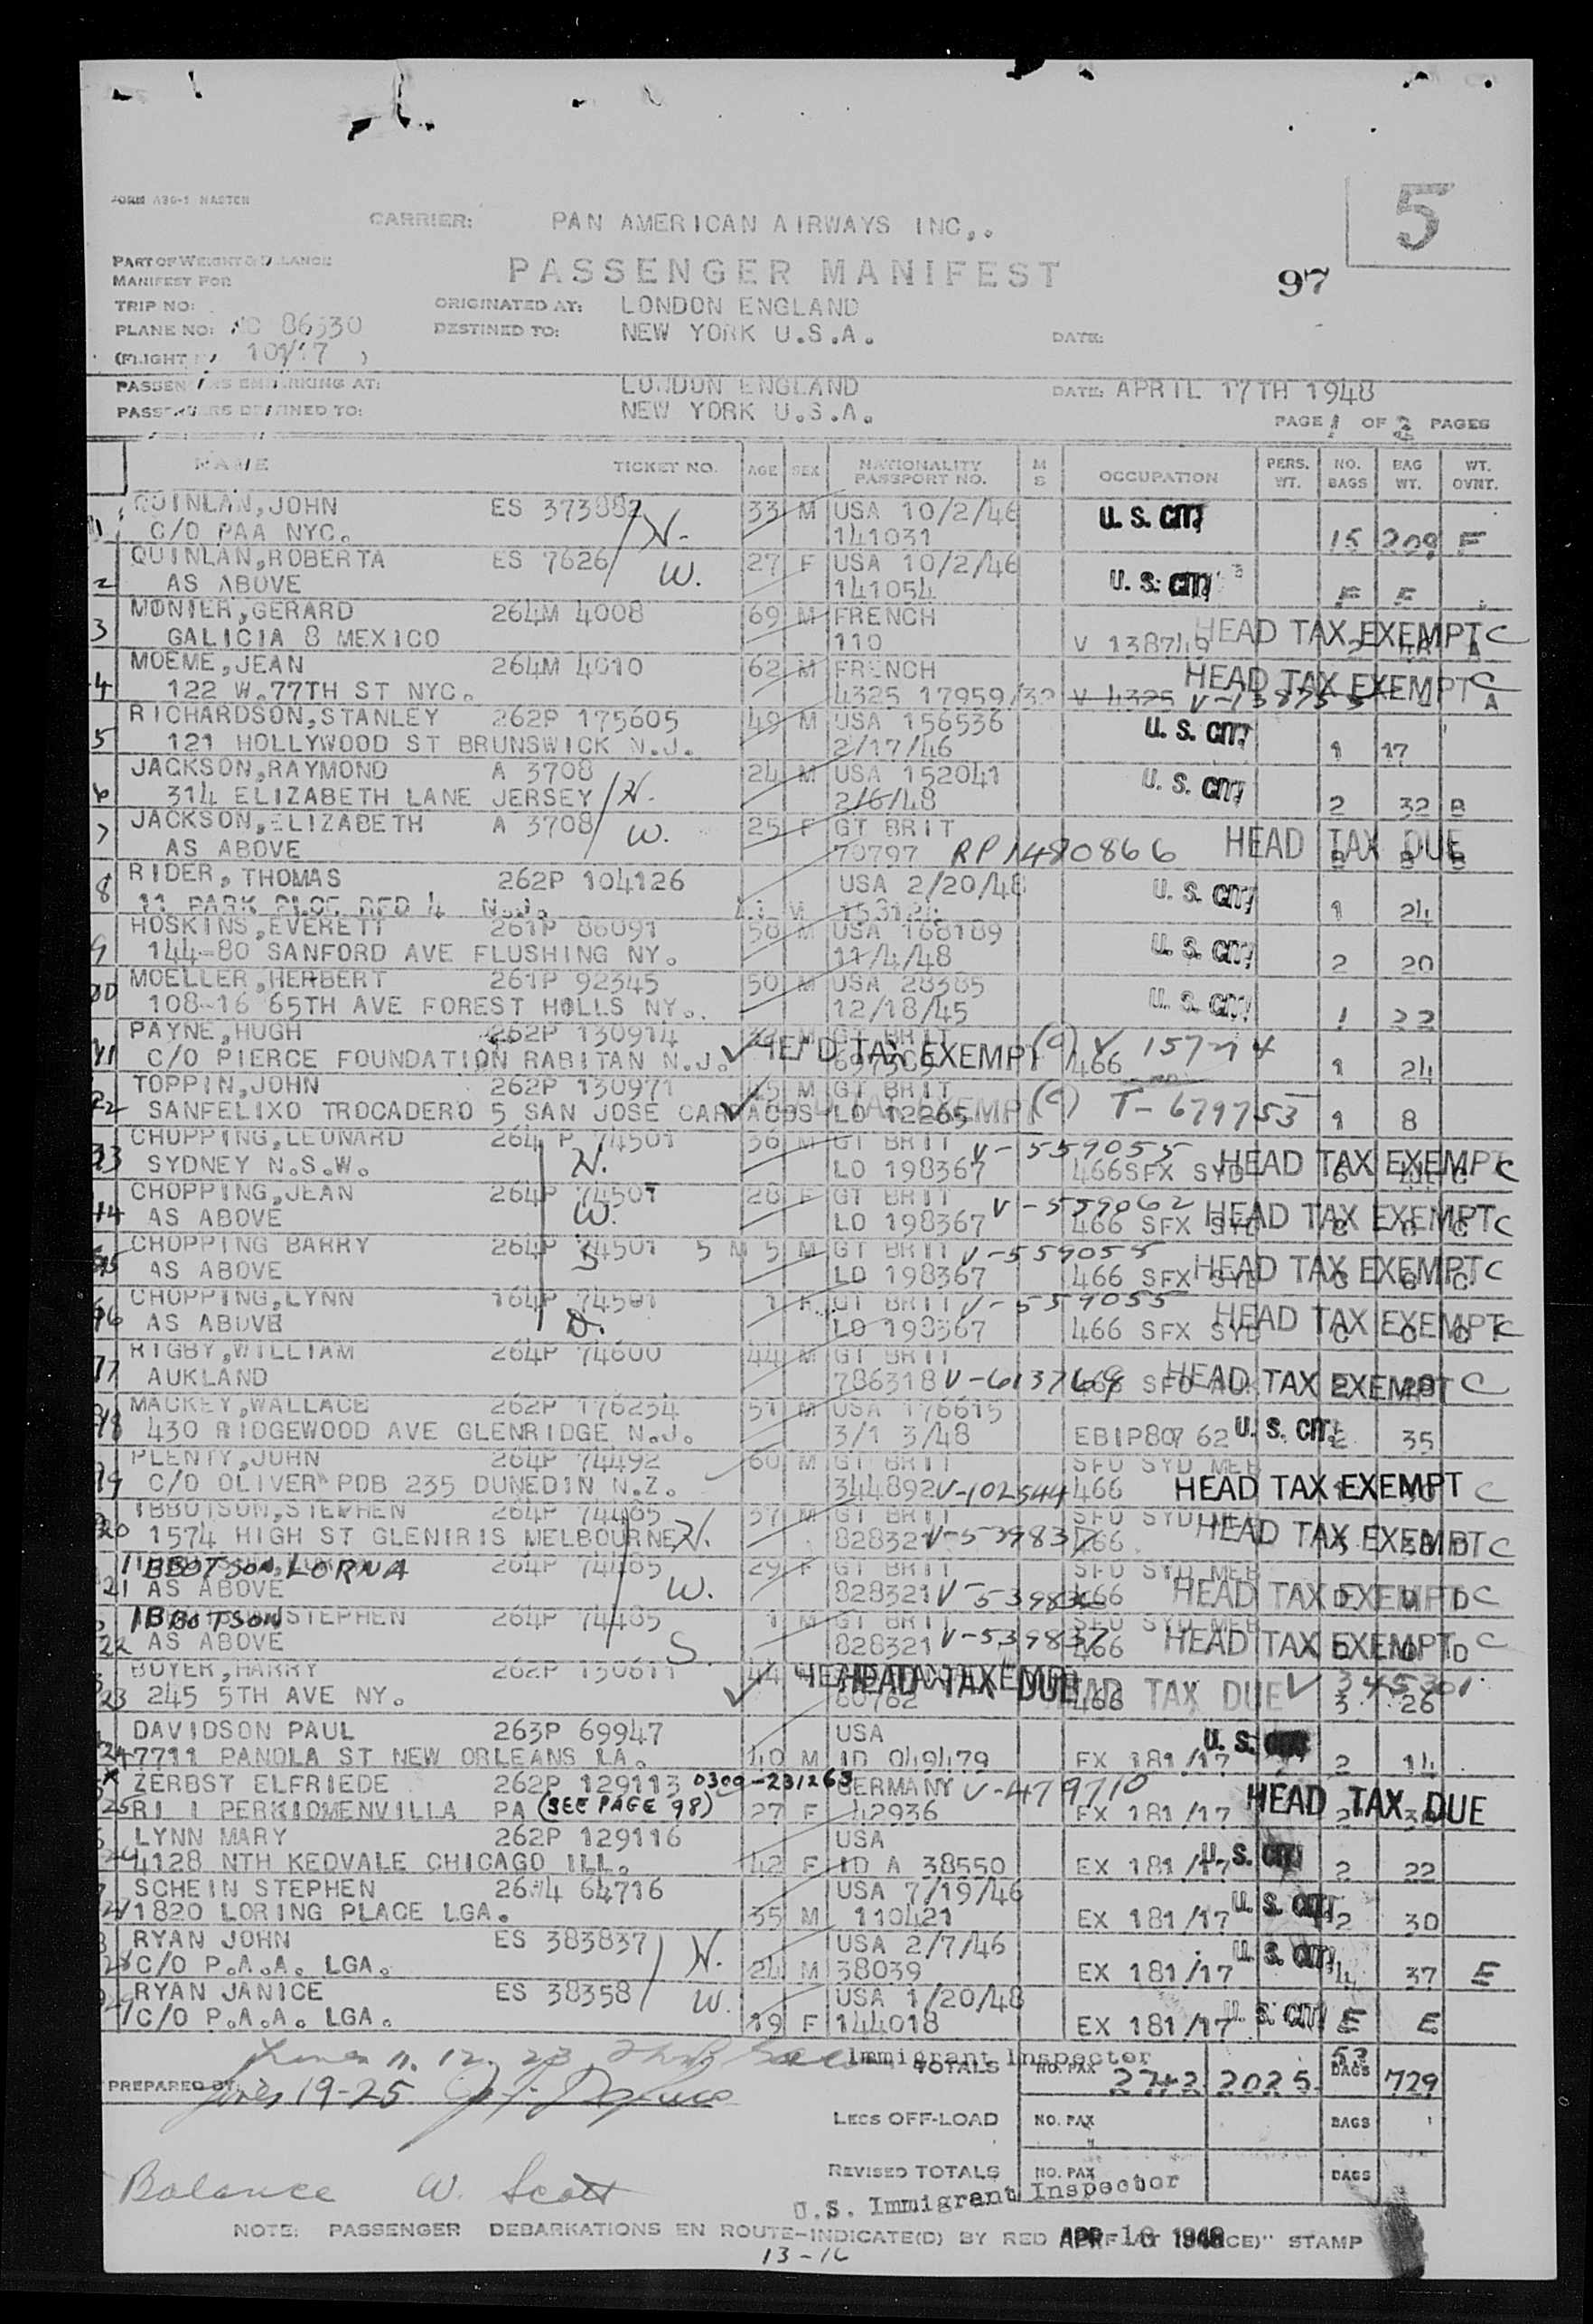 FORM A30-1 MASTER
5
CARRIER: PAN AMERICAN AIRWAYS INC,.
PART OF WEIGHT & BALANCE
MANIFEST FOR
PASSENGER MANIFEST
97
TRIP NO: ORIGINATED AT: LONDON ENGLAND
PLANE NO: NC 86530 DESTINED TO: NEW YORK U.S.A. DATE:
(FLIGHT 101/17 )
PASSENGERS EMBARKING AT: LONDON ENGLAND DATE: APRIL 17TH 1948
PASSENGERS DESTINED TO: NEW YORK U.S.A.
PAGE 1 OF PAGES
NAME TICKET NO. AGE SEX NATIONALITY PASSPORT NO. M S OCCUPATION PERS. WT. NO. BAGS BAG WT. WT. OVNT.
QUINLAN,JOHN ES 373882 H. 33 M USA 10/2/46 U. S. CIT.
1 C/O PAA NYC. 141031 15 209 E
QUINLAN,ROBERTA ES 7626 W. 27 F USA 10/2/46 U. S. CIT.
2 AS ABOVE 141054 E E
MONIER,GERARD 264M 4008 69 M FRENCH HEAD TAX EXEMPT C
3 GALICIA 8 MEXICO 110 V 138749 A
MOEME,JEAN 264M 4010 62 M FRENCH HEAD TAX EXEMPT C
4 122 W.77TH ST NYC. 4325 17959/32 V 4325 A
RICHARDSON,STANLEY 262P 175605 49 M USA 156536 U. S. CIT.
5 121 HOLLYWOOD ST BRUNSWICK N.J. 2/17/46 1 17
JACKSON,RAYMOND A 3708 H. 24 M USA 152041 U. S. CIT.
6 314 ELIZABETH LANE JERSEY 2/6/48 2 32 B
JACKSON,ELIZABETH A 3708 W. 25 F GT BRIT HEAD TAX DUE
7 AS ABOVE 70797 RP 1480866 B B B
RIDER, THOMAS 262P 104126 USA 2/20/48 U. S. CIT.
8 11 PARK PLCE RFD 4 N.J. M 1 24
HOSKINS,EVERETT 261P 86091 58 M USA 168189 U. S. CIT.
9 144-80 SANFORD AVE FLUSHING NY. 11/4/48 2 20
MOELLER,HERBERT 261P 92345 50 M USA 28385 U. S. CIT.
10 108-16 65TH AVE FOREST HOLLS NY.. 12/18/45 1 22
PAYNE,HUGH 262P 130914 M GT BRIT HEAD TAX EXEMPT (C) V 157214
11 C/O PIERCE FOUNDATION RABITAN N.J. 466 1 24
TOPPIN,JOHN 262P 130971 45 M GT BRIT (C) T-679753
12 SANFELIXO TROCADERO 5 SAN JOSE CARRACOS LO 12265 1 8
CHOPPING,LEONARD 264 P 74501 H. 36 M GT BRIT V-559055 HEAD TAX EXEMPT C
13 SYDNEY N.S.W. LO 198367 466SFX SYD 6 C
CHOPPING,JEAN 264P 74501 W. 28 F GT BRIT V-559062 HEAD TAX EXEMPT C
14 AS ABOVE LO 198367 466 SFX SYD C C C
CHOPPING BARRY 264P 74501 S 5 M 5 M GT BRIT V-559055 HEAD TAX EXEMPT C
15 AS ABOVE LO 198367 466 SFX SYD C C C
CHOPPING,LYNN 164P 74501 D. 1 F GT BRIT V-559055 HEAD TAX EXEMPT C
16 AS ABOVE LO 198367 466 SFX SYD C C C
RIGBY,WILLIAM 264P 74600 44 M GT BRIT HEAD TAX EXEMPT C
17 AUKLAND 786318 V-613769 466 SFO 2
MACKEY,WALLACE 262P 176254 51 M USA 176615 U. S. CIT.
18 430 RIDGEWOOD AVE GLENRIDGE N.J. 3/1 3/48 EBIP807 62 2 35
PLENTY,JOHN 264P 74492 60 M GT BRIT SFO SYD MEB
19 C/O OLIVER PDB 235 DUNEDIN N.Z. 344892 V-102544 466 HEAD TAX EXEMPT C
IBBOTSON,STEPHEN 264P 74485 H. 37 M GT BRIT SFO SYD MEB HEAD TAX EXEMPT C
20 1574 HIGH ST GLENIRIS MELBOURNE 828321 V-539837 466
IBBOTSON, LORNA 264P 74485 W. 29 F GT BRIT SFO SYD MEB
21 AS ABOVE 828321 466 HEAD TAX EXEMPT D D D C
IBBOTSON STEPHEN 264P 74485 S. 1 M GT BRIT SFO SYD MEB
22 AS ABOVE 828321 V-539837 466 HEAD TAX EXEMPT D D D C
BOYER,HARRY 262P 130611 44 HEAD TAX EXEMPT
23 245 5TH AVE NY. 60762 466 HEAD TAX DUE HEAD TAX DUE V 345301 3 26
DAVIDSON PAUL 263P 69947 USA U. S.
24 7711 PANOLA ST NEW ORLEANS LA. 40 M ID 049479 EX 181/17 2 14
X ZERBST ELFRIEDE 262P 129113 0300-231263 GERMANY V-479710 HEAD TAX DUE
25 R1 1 PERKIOMENVILLA PA (SEE PAGE 98) 27 F 42936 EX 181/17 2
LYNN MARY 262P 129116 USA U. S. CIT.
26 4128 NTH KEDVALE CHICAGO ILL. 42 F ID A 38550 EX 181/17 2 22
SCHEIN STEPHEN 64716 USA 7/19/46 U. S. CIT.
27 1820 LORING PLACE LGA. 35 M 110421 EX 181/17 2 30
RYAN JOHN ES 383837 H. USA 2/7/46 U. S. CIT.
28 C/O P.A.A. LGA. 24 M 38039 EX 181/17 4 37 E
RYAN JANICE ES 38358 W. USA 1/20/48 U. S. CIT.
29 C/O P.A.A. LGA. 19 F 144018 EX 181/17 E E
Lines 11. 12. 23 Immigrant Inspector
TOTALS NO. PAX 2742 2025 53 BAGS 729
PREPARED BY: Lines 19-25
LESS OFF-LOAD NO. PAX BAGS
REVISED TOTALS NO. PAX BAGS
Balance W. Scott
U.S. Immigrant Inspector
NOTE: PASSENGER DEBARKATIONS EN ROUTE-INDICATE(D) BY RED APR 18 1948 STAMP
13-16